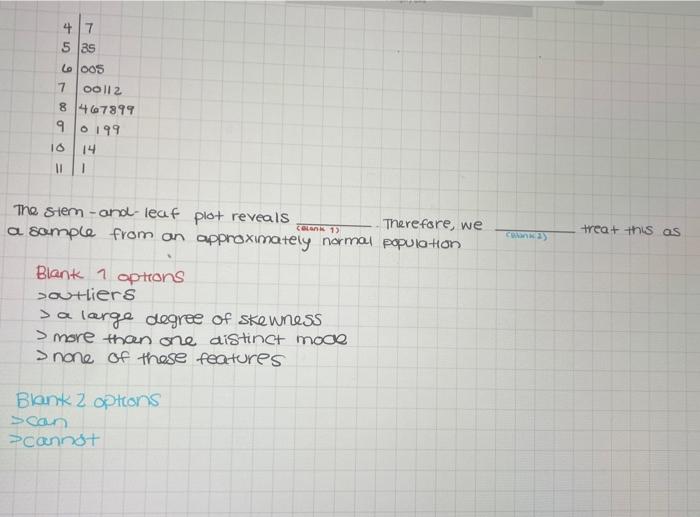 4 | 7
5 | 35
6 | 005
7 | 00112
8 | 467899
9 | 0199
10 | 14
11 | 1
The stem-and-leaf plot reveals ________ . Therefore, we ________ treat this as
(Blank 1) (Blank 2)
a sample from an approximately normal population
Blank 1 options
> outliers
> a large degree of skewness
> more than one distinct mode
> none of these features
Blank 2 options
> can
> cannot